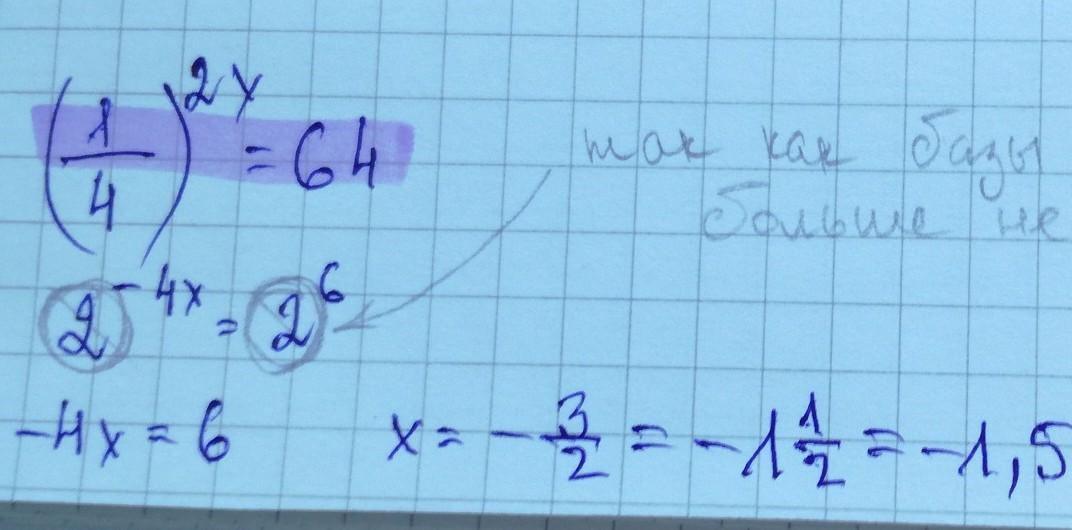 (1/4)^2x = 64
так как базы
больше не
2^-4x = 2^6
-4x = 6 x = -3/2 = -1 1/2 = -1,5